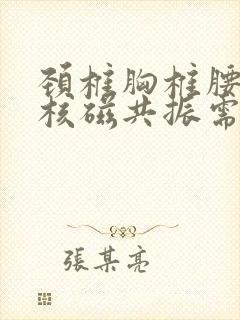 頚椎胸椎腰
核磁共振需
張某亮